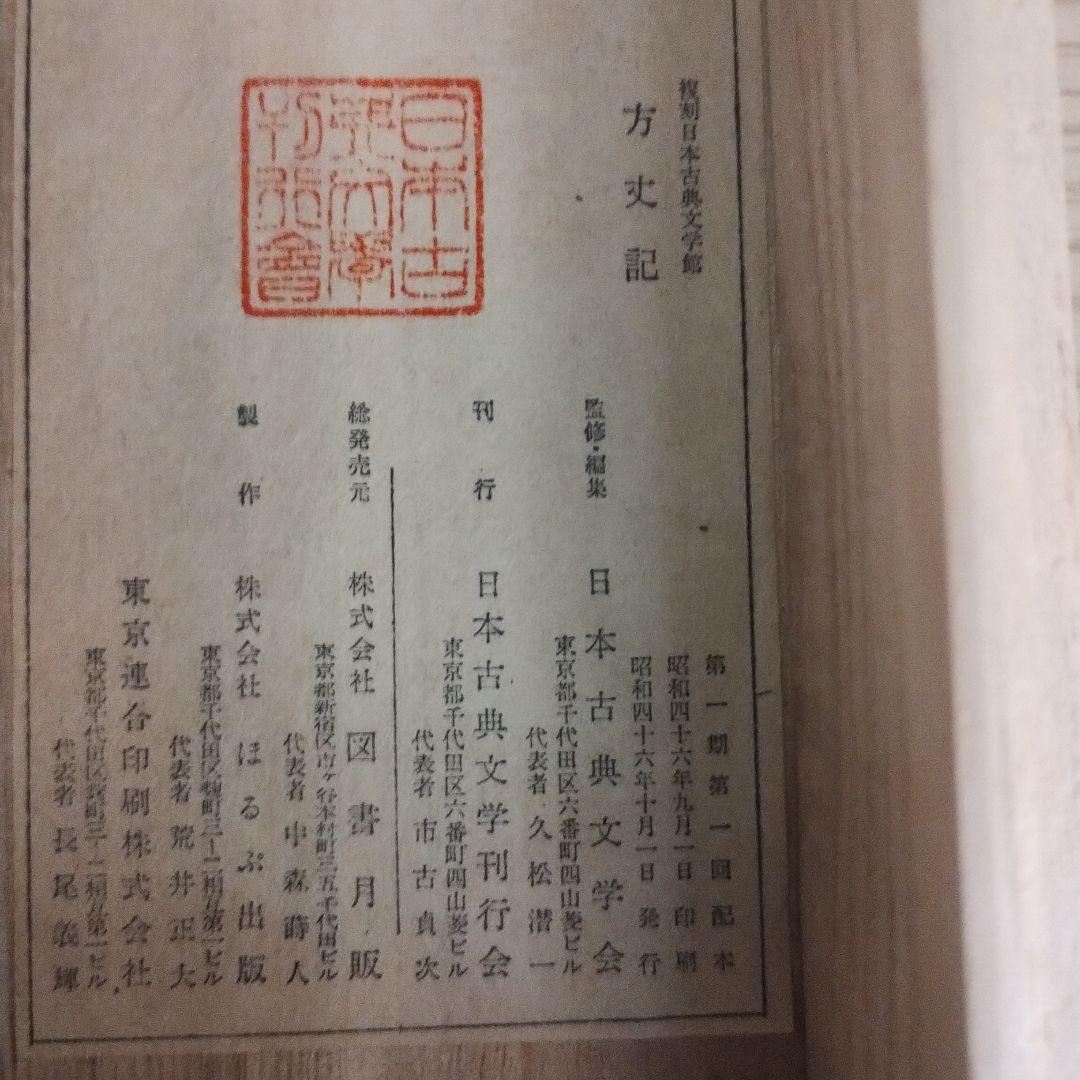 復刻日本古典文学館
方丈記
日本古
典文學
刊行會
第一期第一回配本
昭和四十六年九月一日印刷
昭和四十六年十月一日発行
監修・編集 日本古典文学会
東京都千代田区六番町四山菱ビル
代表者 久松潜一
刊行 日本古典文学刊行会
東京都千代田区六番町四山菱ビル
代表者 市古貞次
総発売元 株式会社 図書月販
東京都新宿区市ヶ谷本村町三五千代田ビル
代表者 中森蒔人
製作 株式会社 ほるぷ出版
東京都千代田区麹町三ー二相互第一ビル
代表者 荒井正大
東京連合印刷株式会社
東京都千代田区麹町三ー二相互第一ビル
代表者 長尾義輝